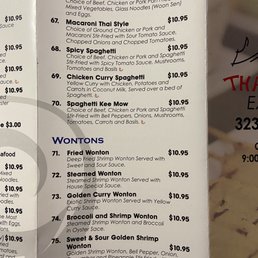 Choice of Beef, Chicken or Pork Pan-Fried
Mixed Vegetables, Glass Noodles (Woon Sen)
and Eggs.
67. Macaroni Thai Style $10.95
Choice of Ground Chicken or Pork and
Macaroni Stir-Fried with Sour Tomato Sauce,
Chopped Onions and Chopped Tomatoes.
68. Spicy Spaghetti $10.95
Choice of Beef, Chicken or Pork and Spaghetti
Stir-Fried with Spicy Tomato Sauce, Mushrooms,
Tomatoes and Basil
69. Chicken Curry Spaghetti $10.95
Yellow Curry with Chicken, Potatoes and
Carrots in Coconut Milk, Served over a bed of
Spaghetti.
70. Spaghetti Kee Mow $10.95
Choice of Beef, Chicken or Pork and Spaghetti
Stir-Fried with Bell Peppers, Onions, Mushrooms,
Tomatoes, Carrots and Basil.
WONTONS
71. Fried Wonton $10.95
Deep Fried Shrimp Wonton Served with
Sweet and Sour Sauce.
72. Steamed Wonton $10.95
Steamed Shrimp Wonton Served with
House Special Sauce.
73. Golden Curry Wonton $10.95
Exotic Shrimp Wonton Served with Yellow
Curry Sauce.
74. Broccoli and Shrimp Wonton $10.95
Steamed Broccoli and Shrimp Wonton
in Oyster Sauce.
75. Sweet & Sour Golden Shrimp
Wonton $10.95
Golden Shrimp Wonton, Bell Pepper, Onion,
$10.95
$10.95
$10.95
$3.00
$10.95
$10.95
THA
323
9:00